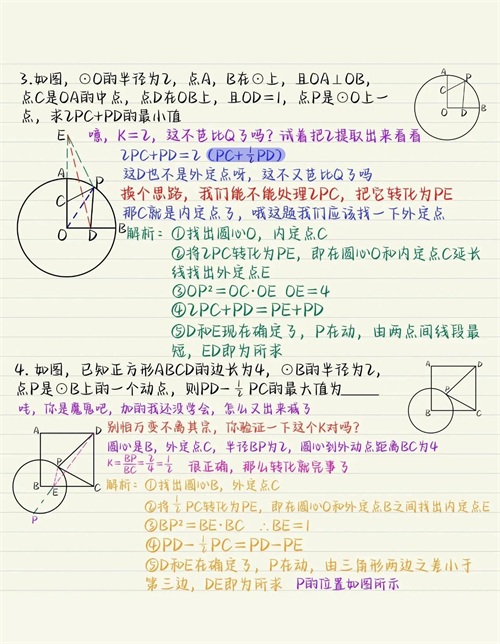 3.如图，⊙O的半径为2，点A，B在⊙上，且OA⊥OB，
点C是OA的中点，点D在OB上，且OD=1，点P是⊙O上一
点，求2PC+PD的最小值
噫，K=2，这不芭比Q了吗？试着把2提取出来看看
2PC+PD=2（PC+½PD）
这D也不是外定点呀，这不又芭比Q了吗
换个思路，我们能不能处理2PC，把它转化为PE
那C就是内定点了，哦这题我们应该找一下外定点
解析：①找出圆心O，内定点C
②将2PC转化为PE，即在圆心O和内定点C延长
线找出外定点E
③OP²=OC·OE OE=4
④2PC+PD=PE+PD
⑤D和E现在确定了，P在动，由两点间线段最
短，ED即为所求
A
P
C
O
D
B
E
A
P
C
O
D
B
4.如图，已知正方形ABCD的边长为4，⊙B的半径为2，
点P是⊙B上的一个动点，则PD-½PC的最大值为____
哇，你是魔鬼吧，加的我还没学会，怎么又出来减了
别怕万变不离其宗，你验证一下这个K对吗？
圆心是B，外定点C，半径BP为2，圆心到外动点距离BC为4
K=BP/BC=2/4=1/2 很正确，那么转化就完事了
解析：①找出圆心B，外定点C
②将½PC转化为PE，即在圆心O和外定点B之间找出内定点E
③BP²=BE·BC ∴BE=1
④PD-½PC=PD-PE
⑤D和E在确定了，P在动，由三角形两边之差小于
第三边，DE即为所求 P的位置如图所示
A
D
P
B
C
A
D
P
B
E
C
P